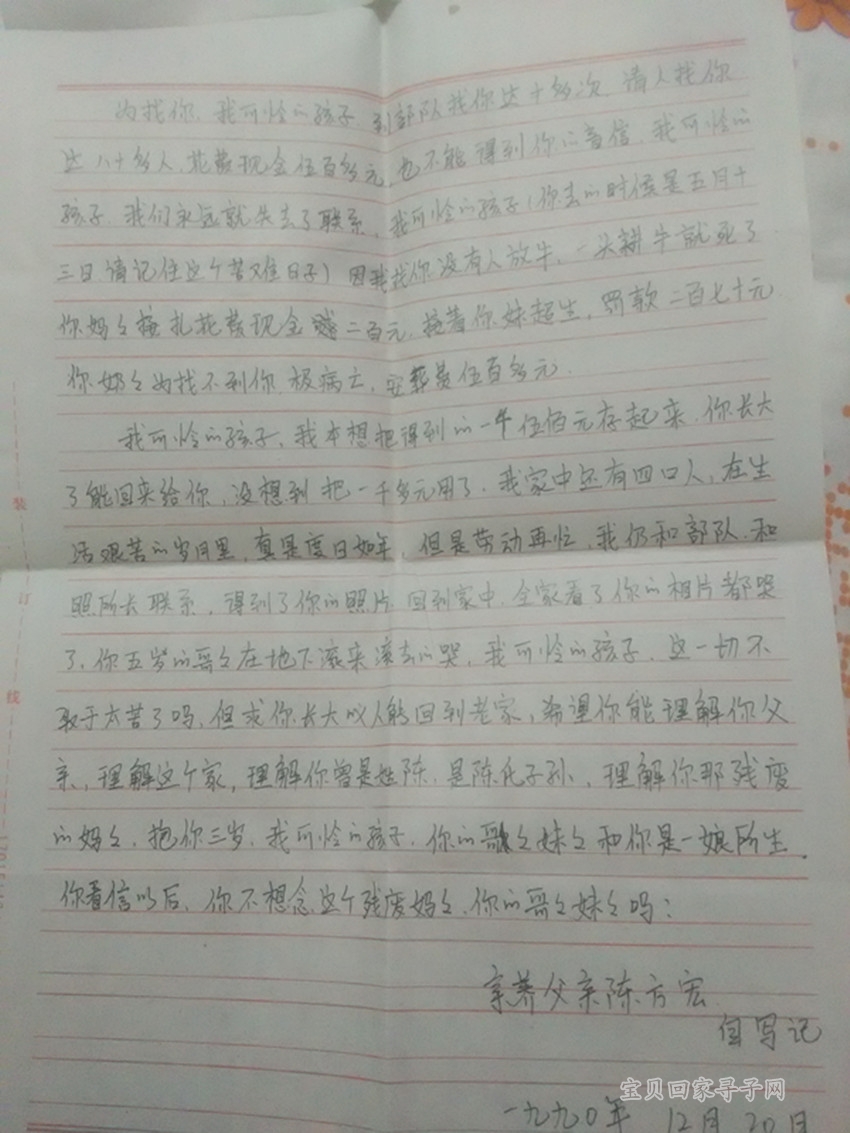 为找你，我可怜的孩子，到部队找你达十多次，请人找你
达八十多人，花费现金伍百多元，也不能得到你的音信，我可怜的
孩子，我们永远就失去了联系，我可怜的孩子（你去的时侯是五月十
三日，请记住这个苦难日子）因我找你没有人放牛，一头耕牛就死了
你妈々 扎花费现金 二百元，接着你妹超生，罚款二百七十元
你奶々为找不到你 极病亡，安葬费伍百多元．
我可怜的孩子，我本想把得到的一千伍佰元存起来，你长大
了能回来给你，没想到把一千多元用了．我家中还有四口人，在生
活艰苦的岁月里，真是度日如年，但是劳动再忙，我仍和部队，和
照所长联系，得到了你的照片，回到家中，全家看了你的相片都哭
了，你五岁的哥々在地下滚来滚去的哭，我可怜的孩子，这一切不
致于太苦了吗，但求你长大以人能回到老家，希望你能理解你父
亲，理解这个家，理解你曾是姓陈，是陈氏子孙，理解你那残废
的妈々，抱你三岁，我可怜的孩子，你的哥々妹々和你是一娘所生．
你看信以后，你不想念这个残废妈々，你的哥々妹々吗：
亲养父亲陈方宏
自写记
一九九〇年 12月20日
装
订
线
宝贝回家寻子网